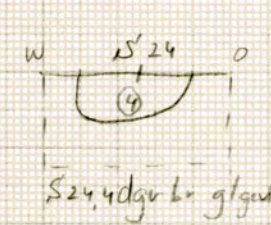 W S 24 O
4
S24,4dgr br g/gev